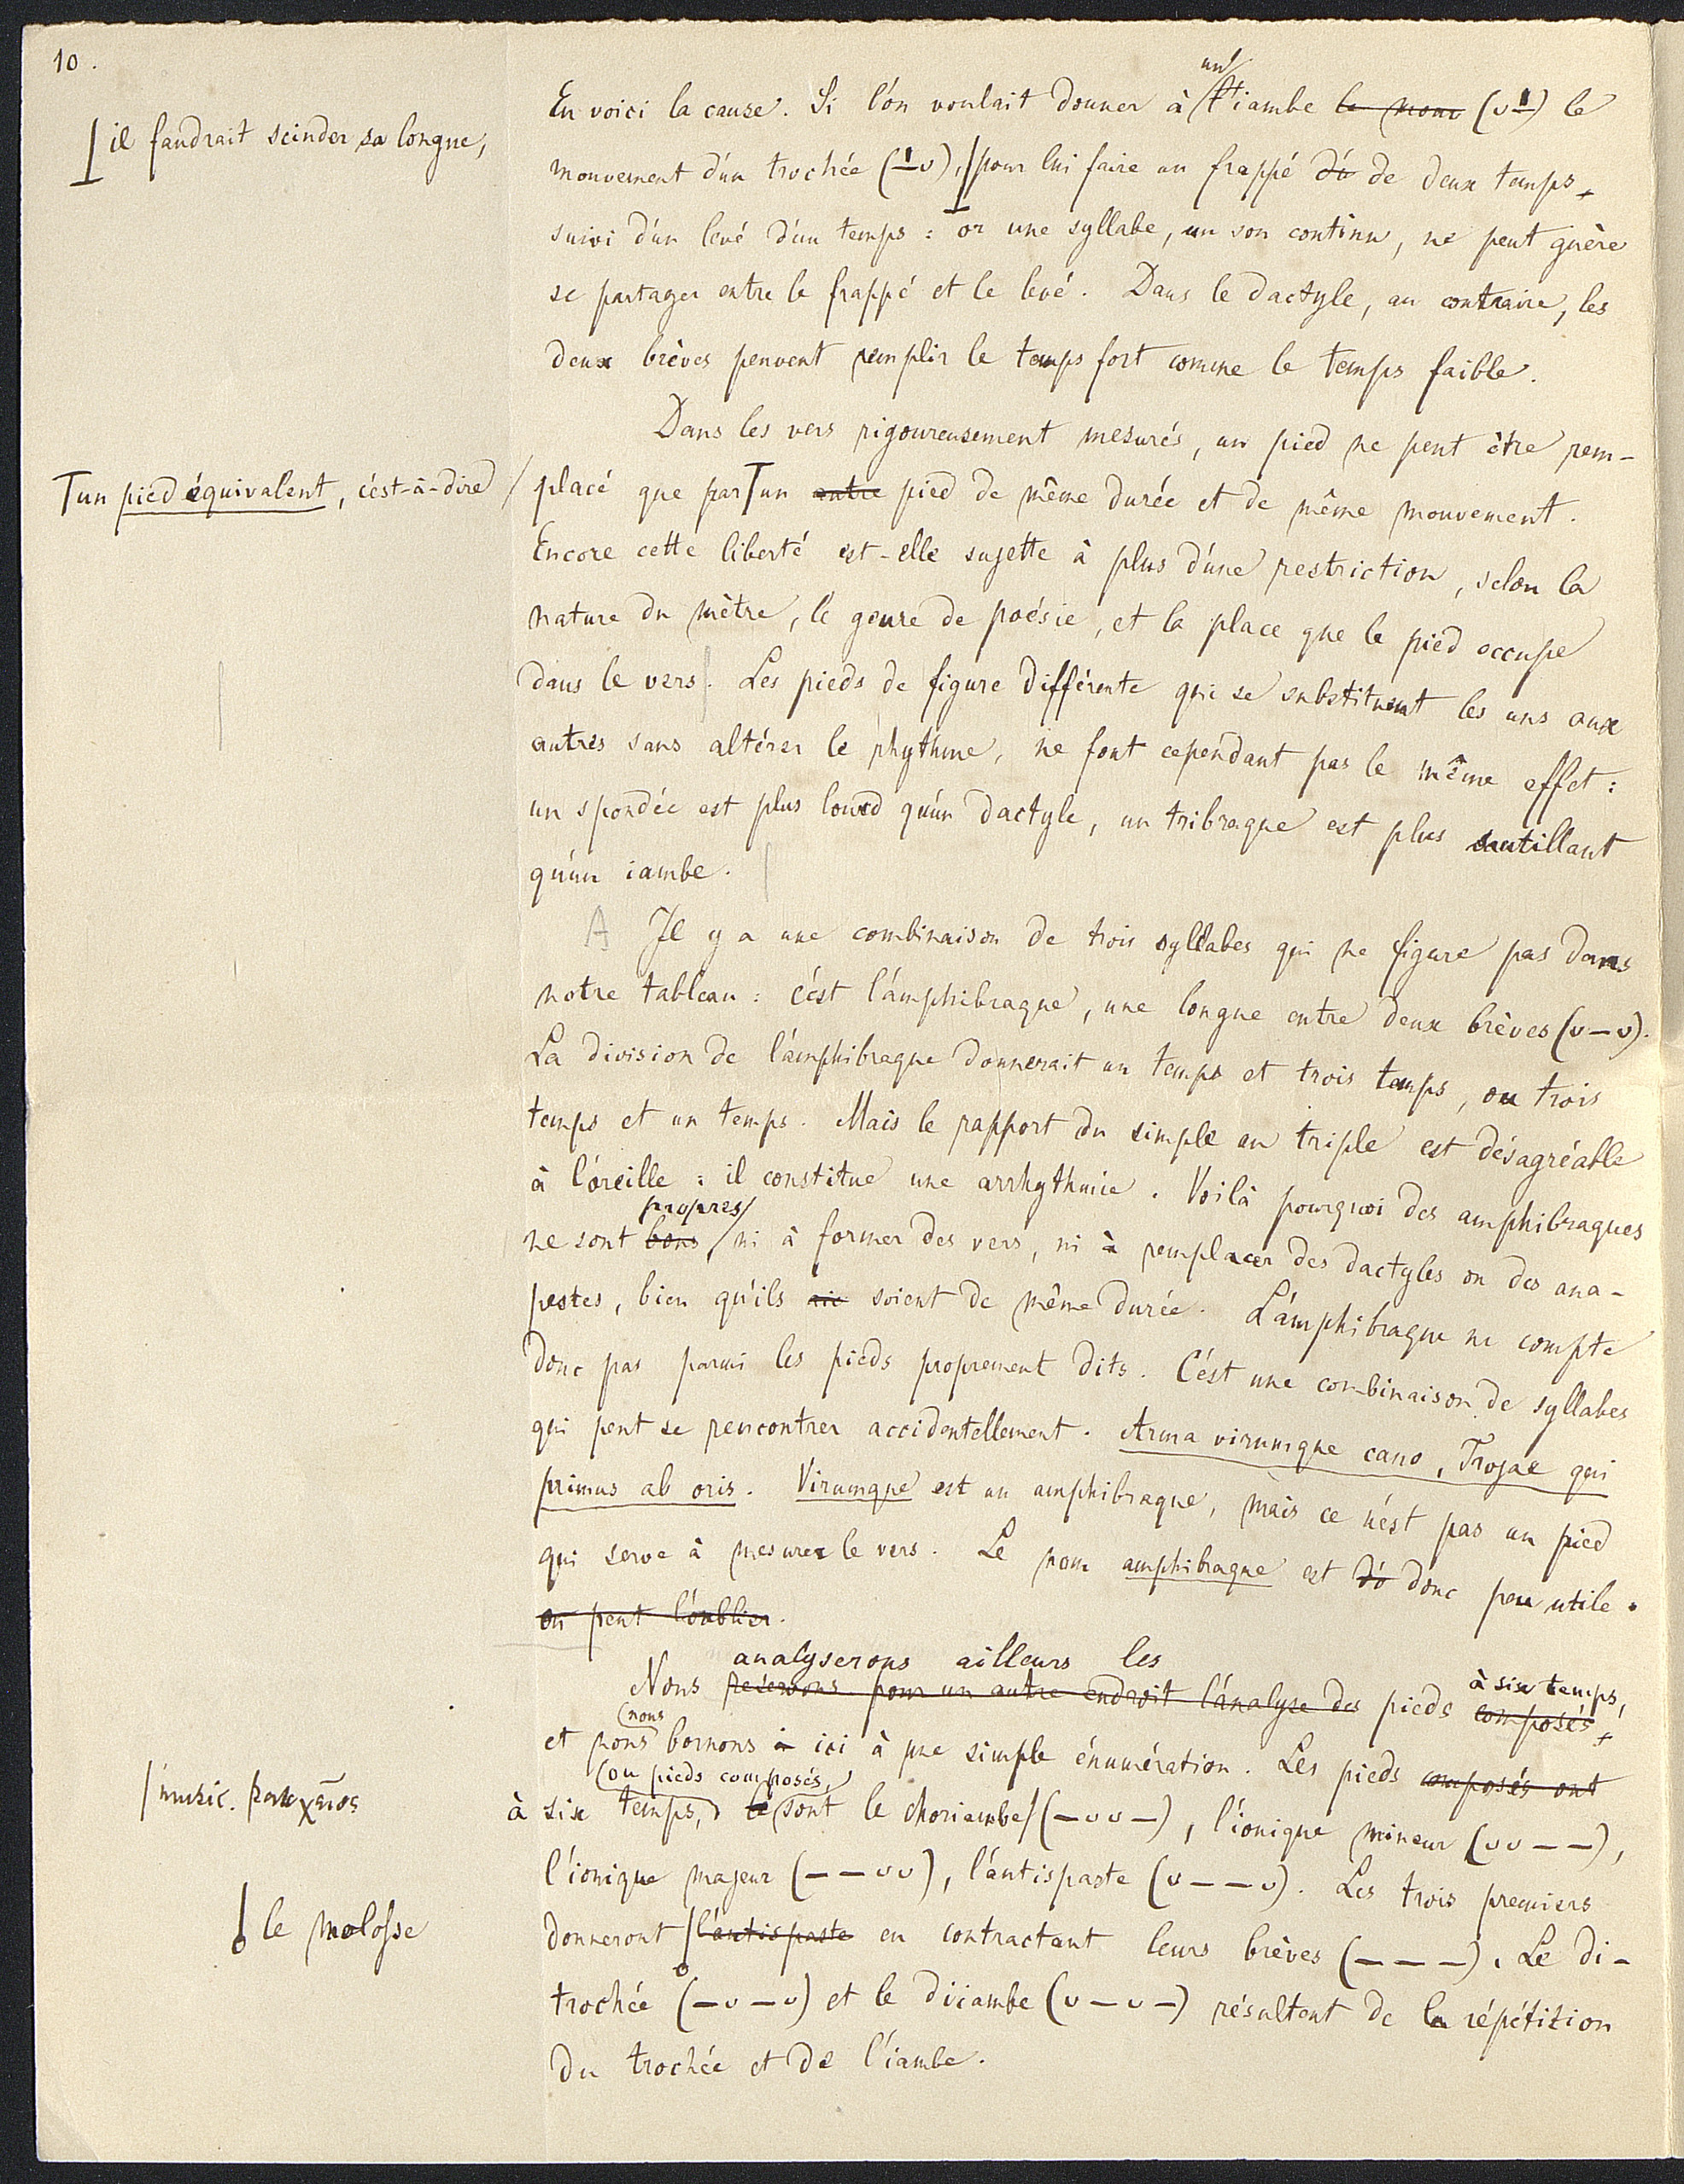 10.
un
En voici la cause. Si l'on voulait donner à l'iambe le mou (υ –́) le
il faudrait scinder sa longue,
mouvement d'un trochée (–́ υ), pour lui faire un frappé d'u de deux temps,
suivi d'un levé d'un temps : or une syllabe, un son continu, ne peut guère
se partager entre le frappé et le levé. Dans le dactyle, au contraire, les
deux brèves peuvent remplir le temps fort comme le temps faible.
Dans les vers rigoureusement mesurés, un pied ne peut être rem-
un pied équivalent, c'est-à-dire
placé que par un autre pied de même durée et de même mouvement.
Encore cette liberté est-elle sujette à plus d'une restriction, selon la
nature du mètre, le genre de poésie, et la place que le pied occupe
dans le vers. Les pieds de figure différente qui se substituent les uns aux
autres sans altérer le rhythme, ne font cependant pas le même effet :
un spondée est plus lourd qu'un dactyle, un tribraque est plus sautillant
qu'un iambe.
A Il y a une combinaison de trois syllabes qui ne figure pas dans
notre tableau : c'est l'amphibraque, une longue entre deux brèves (υ – υ).
La division de l'amphibraque donnerait un temps et trois temps, ou trois
temps et un temps. Mais le rapport du simple au triple est désagréable
à l'oreille : il constitue une arrhythmie. Voilà pourquoi des amphibraques
propres
ne sont bons ni à former des vers, ni à remplacer des dactyles ou des ana-
pestes, bien qu'ils soient de même durée. L'amphibraque ne compte
donc pas parmi les pieds proprement dits. C'est une combinaison de syllabes
qui peut se rencontrer accidentellement. Arma virumque cano, Trojae qui
primus ab oris. Virumque est un amphibraque, mais ce n'est pas un pied
qui serve à mesurer le vers. Le nom amphibraque est do donc peu utile.
on peut l'oublier.
analyserons ailleurs les
à six temps,
Nous réservons pour un autre endroit l'analyse des pieds composés,
nous
et nous bornons à ici à une simple énumération. Les pieds composés ont
(ou pieds composés,)
à six temps, sont le choriambe (– υ υ –), l'ionique mineur (υ υ – –),
l'ionique majeur (– – υ υ), l'antispaste (υ – – υ). Les trois premiers
le molosse
donneront l'antispaste en contractant leurs brèves (– – –). Le di-
trochée (– υ – υ) et le diiambe (υ – υ –) résultent de la répétition
du trochée et de l'iambe.